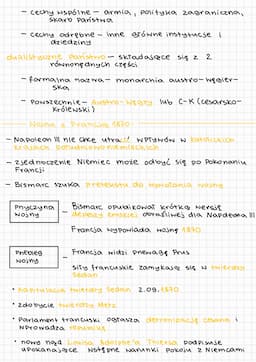 - cechy wspólne - armia, polityka zagraniczna, skarb Państwa
- cechy odrębne - inne główne instytucje i dziedziny
dualistyczne Państwo - składające się z 2 równorzędnych części
- formalna nazwa - monarchia austro-węgierska
- Powszechnie - Austro-Węgry lub C-K (cesarsko-królewski)
Wojna z Francją 1870
- Napoleon III nie chce utracić wpływów w katolickich krajach południowoniemieckich
- zjednoczenie Niemiec może odbyć się po Pokonaniu Francji
- Bismarc szuka pretekstu do wywołania wojny
Przyczyna wojny
- Bismarc opublikował krótką wersję depeszy emskiej obraźliwej dla Napoleona III
Francja wypowiada wojnę 1870
Przebieg wojny
- Francja widzi przewagę Prus
siły francuskie zamykają się w twierdzy Sedan
• kapitulacja twierdzy Sedan 2.09.1870
• zdobycie twierdzy Metz
• Parlament francuski ogłasza detronizację cesarza i wprowadza republikę
• nowy rząd Louisa Adolphe'a Thiersa podpisuje upokarzające wstępne warunki pokoju z Niemcami